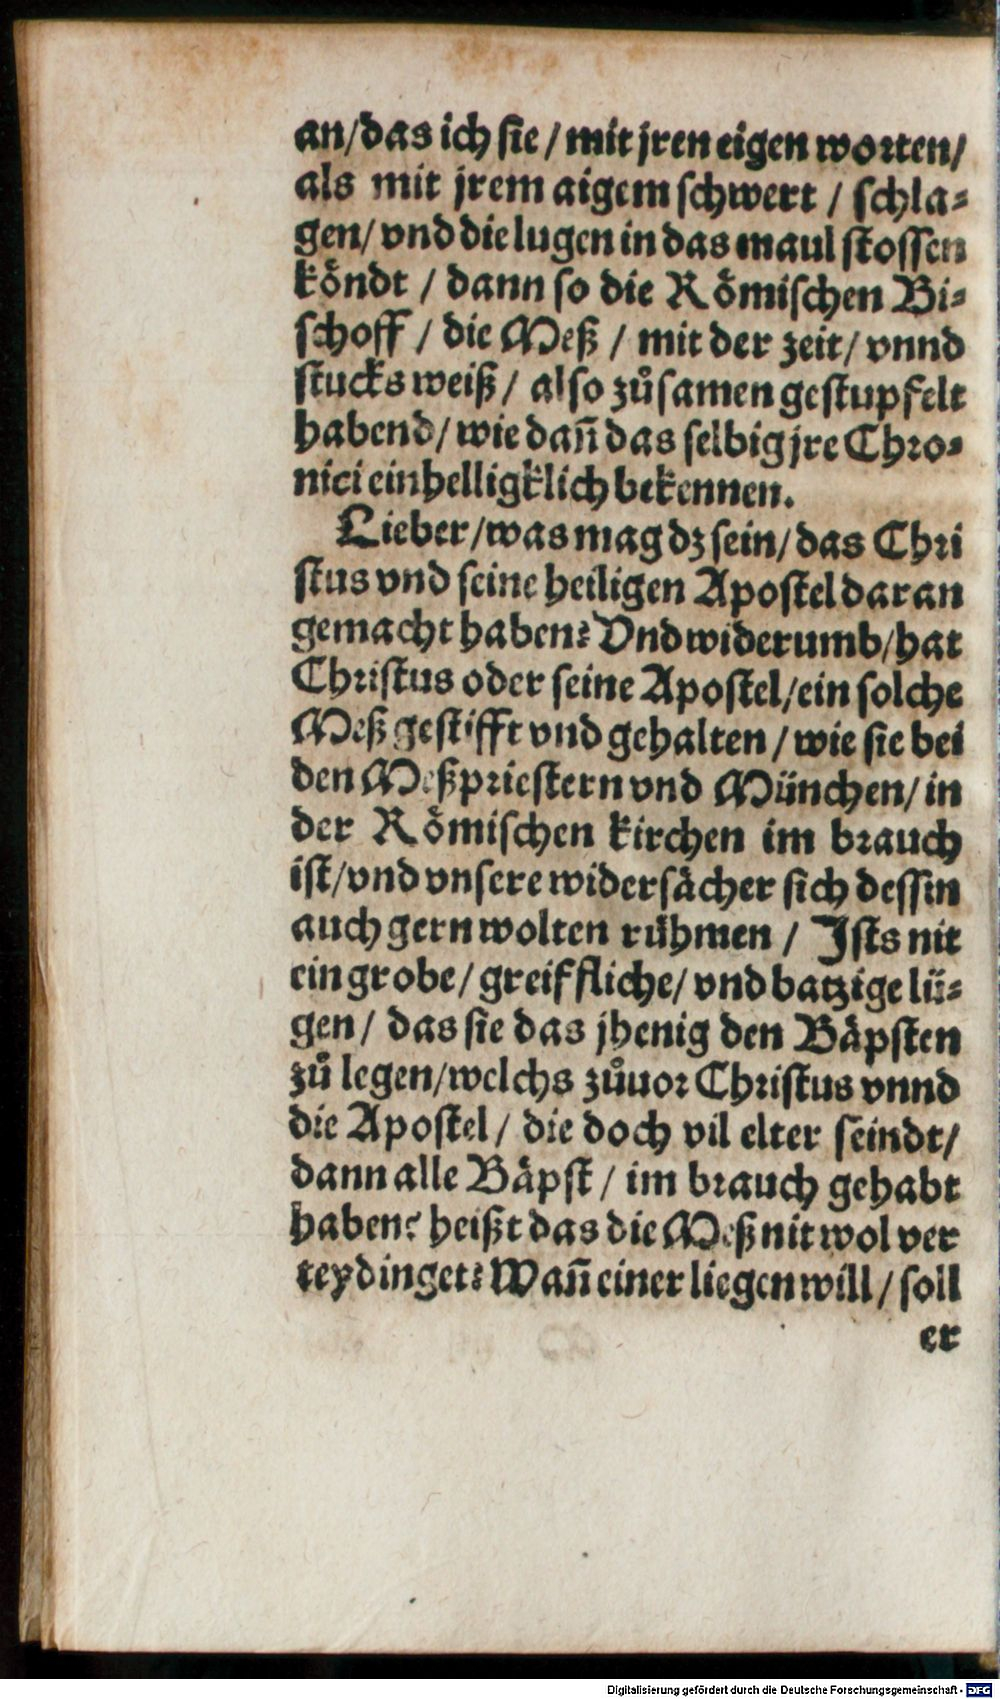 an/das ich sie / mit jren eigen worten/
als mit jrem aigem schwert / schla⸗
gen/ vnd die lugen in das maul stossen
koͤndt / dann so die Roͤmischen Bi⸗
schoff / die Meß / mit der zeit/ vnnd
stucks weiß / also zuͦsamen gestupfelt
habend/ wie dañ das selbig jre Chro⸗
nici einhelligklich bekennen.
Lieber/was mag dz sein/das Chri
stus vnd seine heiligen Apostel daran
gemacht haben? Vnd widerumb/hat
Christus oder seine Apostel/ein solche
Meß gestifft vnd gehalten / wie sie bei
den Meßpriestern vnd München/ in
der Roͤmischen kirchen im brauch
ist/vnd vnsere widersaͤcher sich dessin
auch gern wolten ruͤhmen / Ists nit
ein grobe/ greiffliche/ vnd batzige lü⸗
gen/ das sie das jhenig den Baͤpsten
zuͦ legen/welchs zuͦuor Christus vnnd
die Apostel/ die doch vil elter seindt/
dann alle Baͤpst / im brauch gehabt
haben? heißt das die Meß nit wol ver
teydinget? Wañ einer liegen will / soll
er
Digitalisierung gefördert durch die Deutsche Forschungsgemeinschaft - DFG